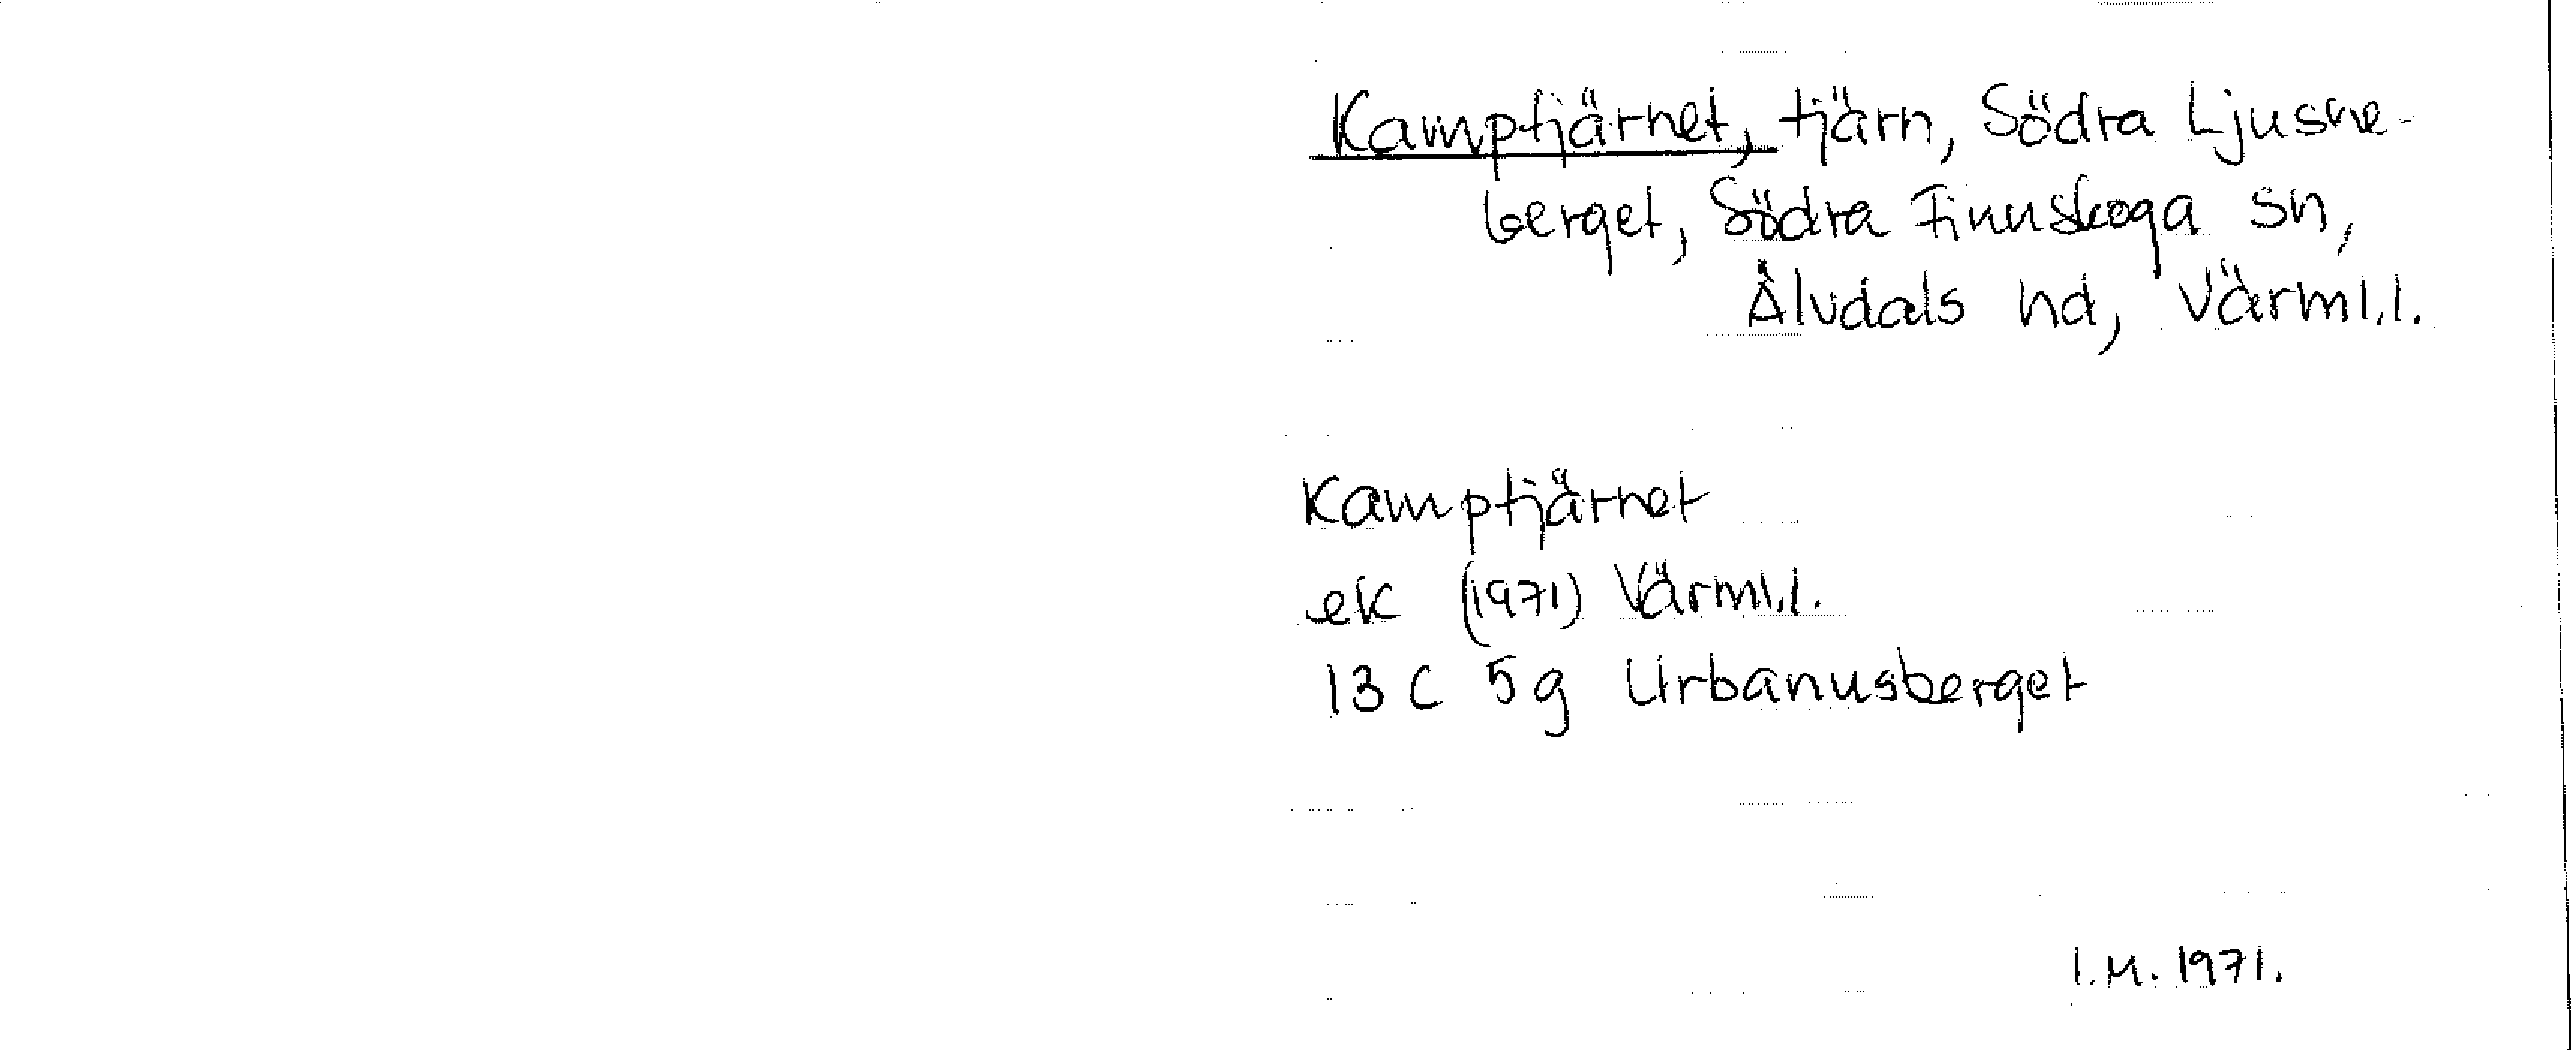 Kamptjärnet, tjärn, Södra Ljusne-
berget, Södra Finnskoga sn,
Älvdals hd, Värml.l.
Kamptjärnet
ek (1971) Värml.l.
13 C 5g Urbanusberget
I.M. 1971.